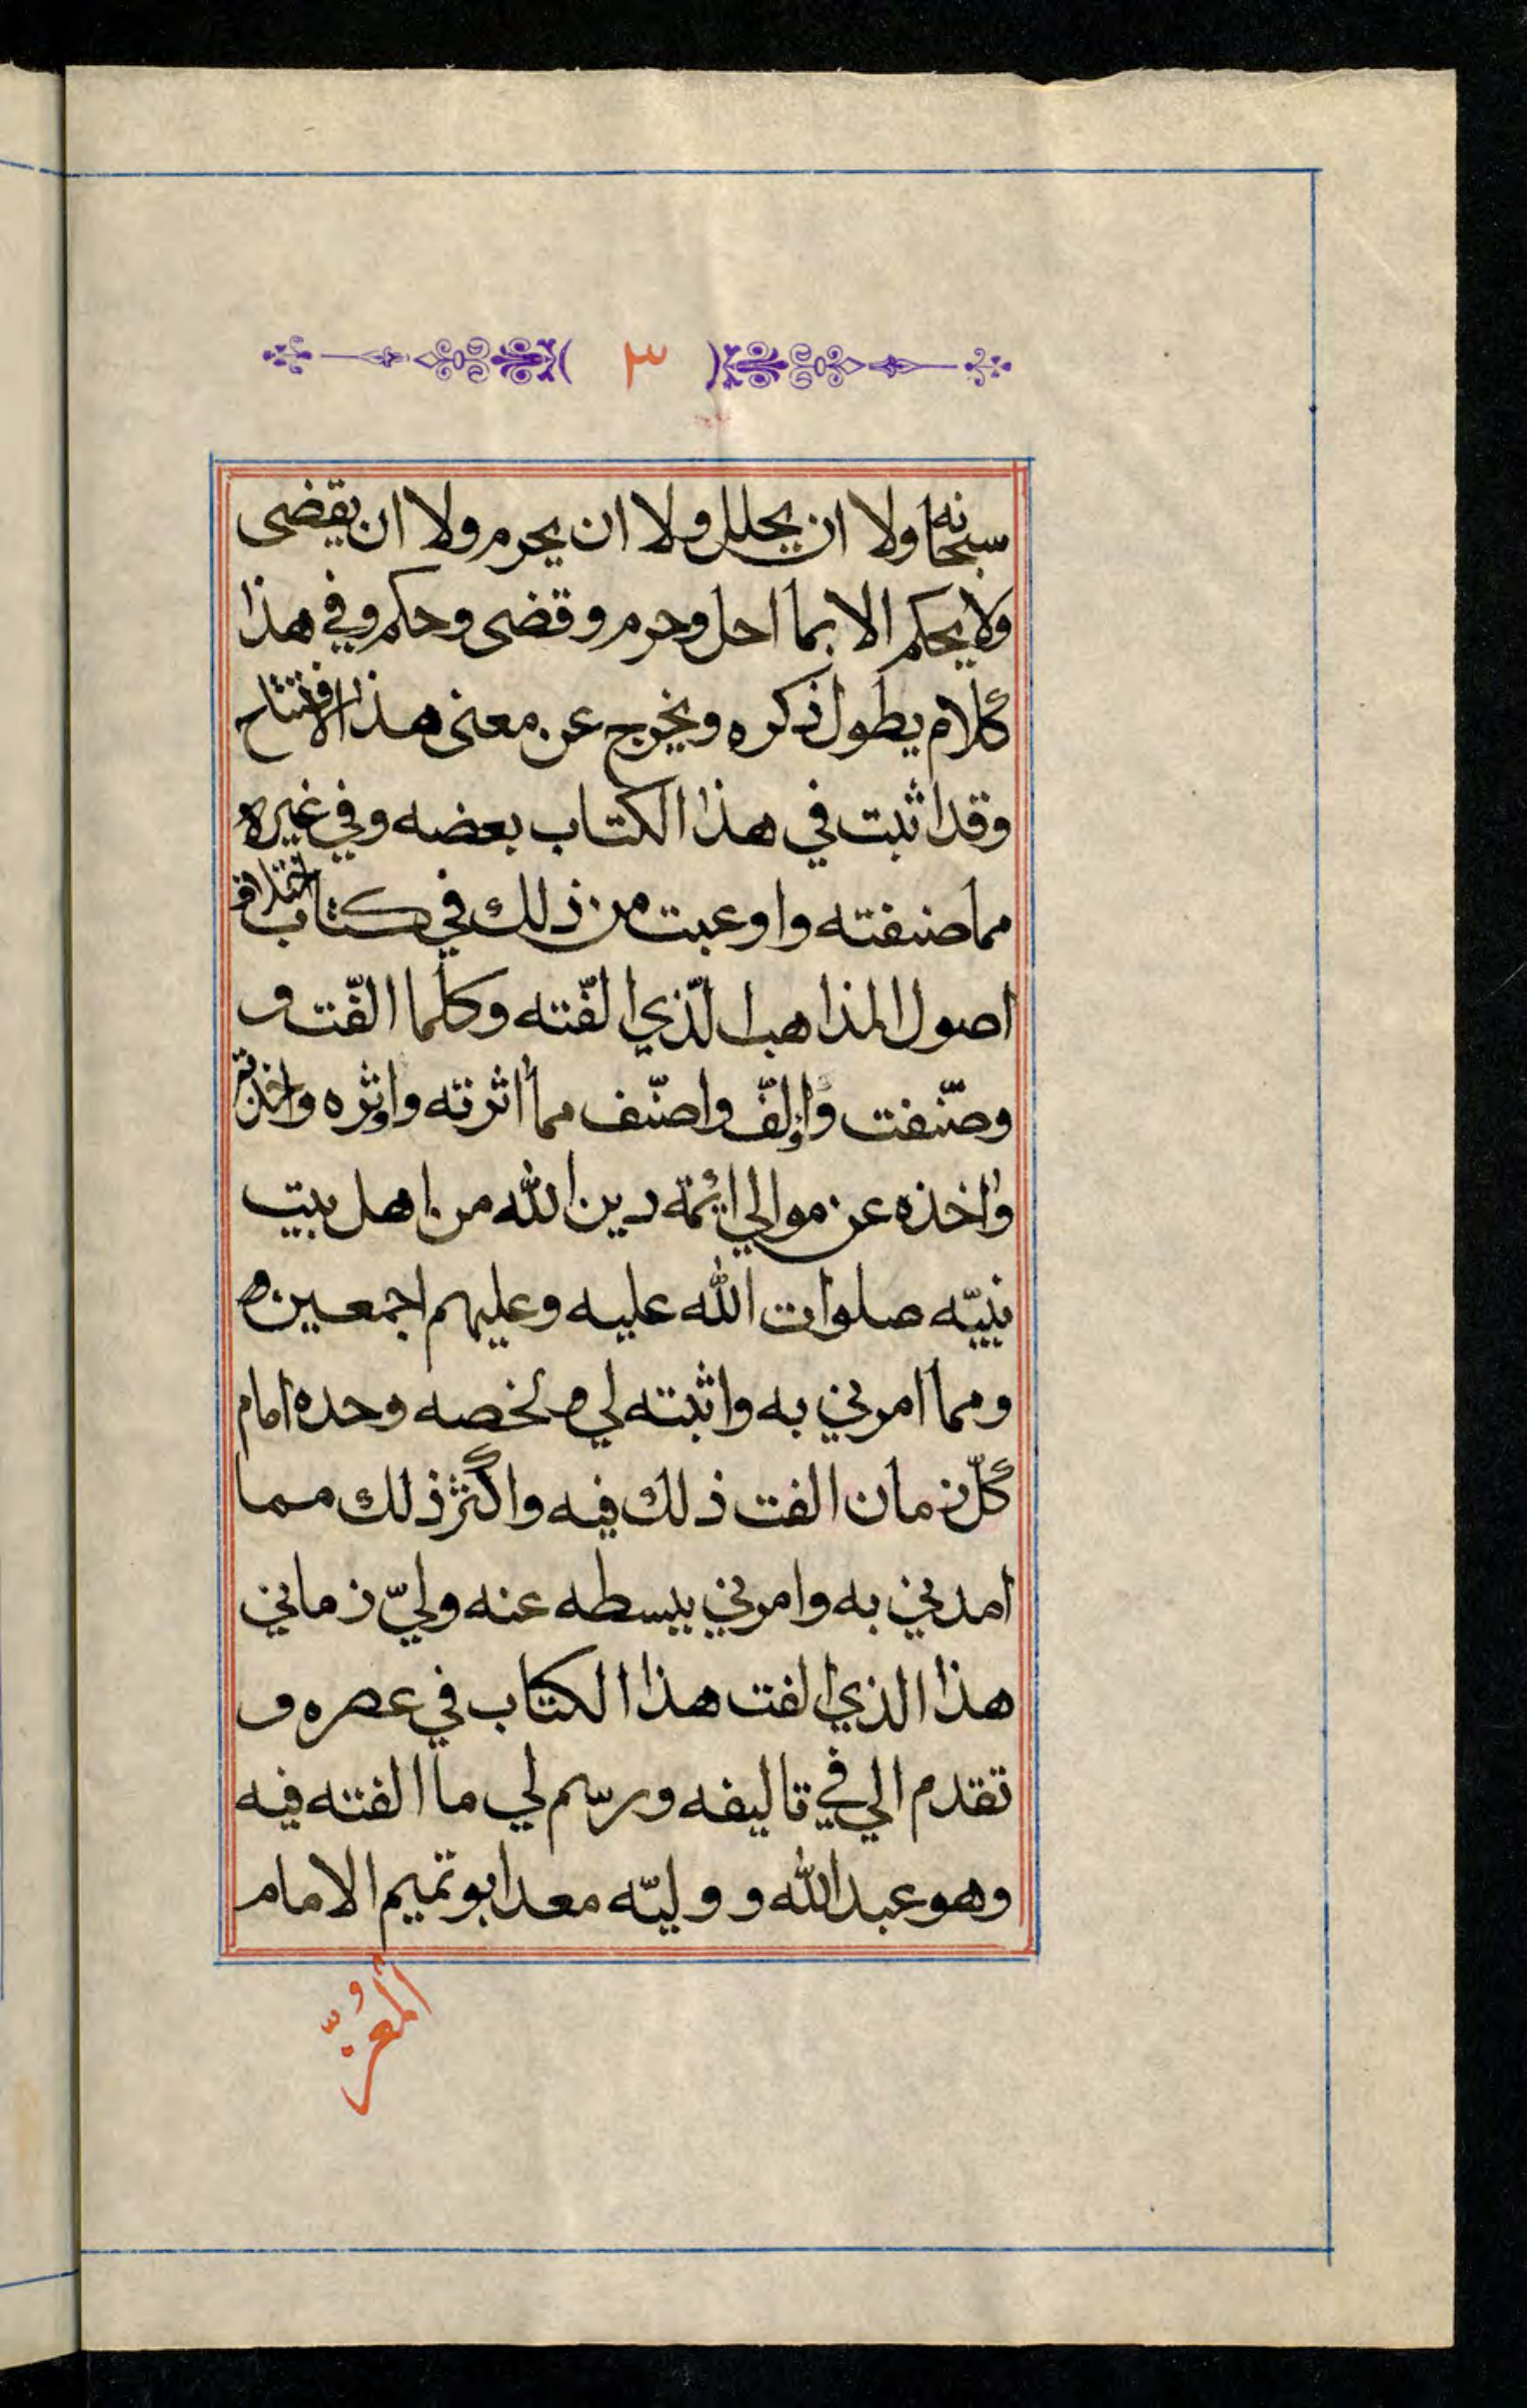 ٣
سبحانه ولا ان يحلل ولا ان يحرم ولا ان يقضى
ولا يحكم الا بما احل وحرم وقضى وحكم وفي هذا
كلام يطول ذكره ويخرج عن معنى هذا الافتتاح
وقد اثبت في هذا الكتاب بعضه وفي غيره
مما صنفته واوعبت من ذلك في كتاب اختلاف
اصول المذاهب الّذي الفّته وكلما الفّت و
وصّنفت واؤلّف واصنّف مما اثرته واوثره واخذته
واخذه عن موالي ائمة دين الله من اهل بيت
نبيّه صلوات الله عليه وعليهم اجمعين ه
ومما امرني به واثبته لي ولخصه وحده امام
كلّ زمان الفت ذلك فيه واكثر ذلك مما
امدني به وامرني ببسطه عنه وليّ زماني
هذا الذي الفت هذا الكتاب في عصره و
تقدم الي في تاليفه ورسم لي ما الفته فيه
وهو عبد الله و وليّه معد ابو تميم الامام
المُعزّ